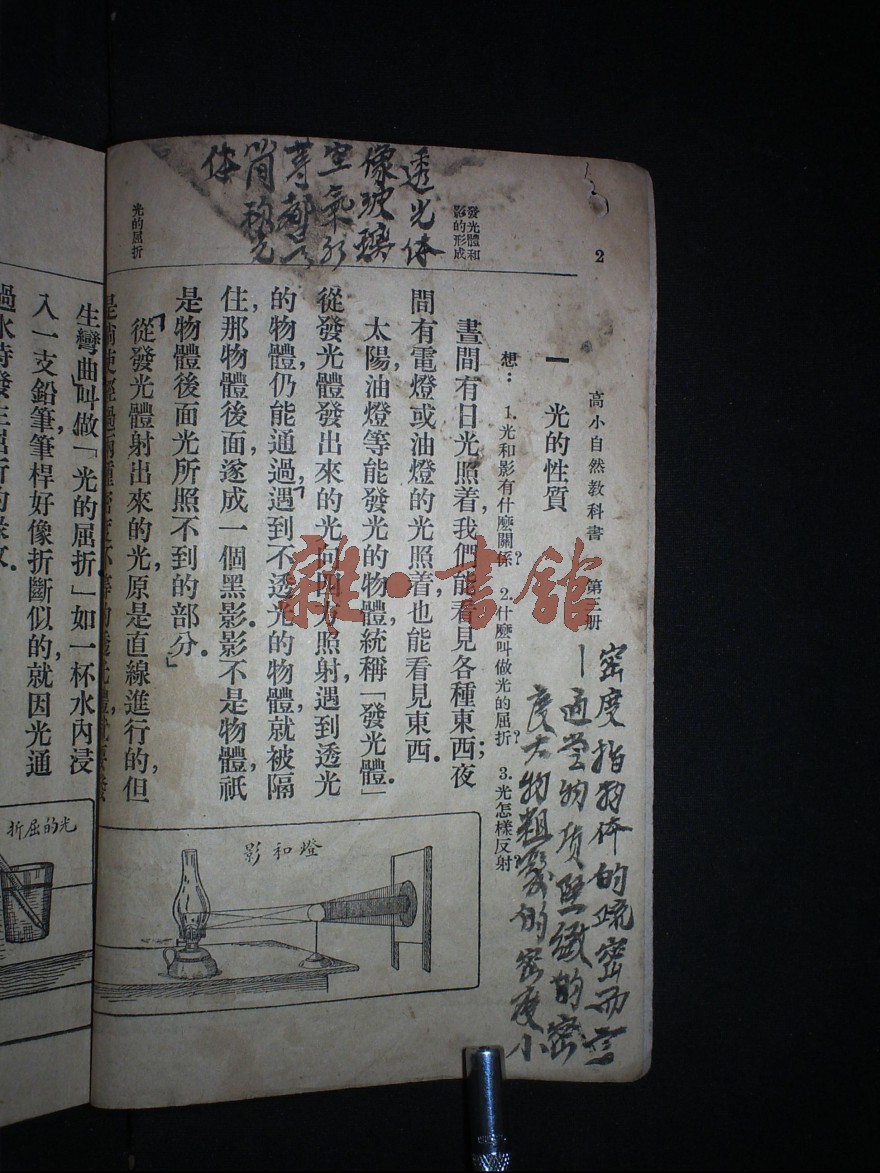 2
高小自然教科書 第三册
一 光的性質
想： 1. 光和影有什麼關係？ 2. 什麼叫做光的屈折？ 3. 光怎樣反射？
發光體和
影的形成
晝間有日光照着，我們能看見各種東西；夜
間有電燈或油燈的光照着，也能看見東西．
太陽，油燈等能發光的物體，統稱「發光體．」
從發光體發出來的光，向四方照射，遇到透光
的物體，仍能通過，遇到不透光的物體，就被隔
住，那物體後面，遂成一個黑影，影不是物體，祇
是物體後面光所照不到的部分．」
光的屈折
從發光體射出來的光，原是直線進行的，但
生彎曲，叫做「光的屈折．」如一杯水，內浸
入一支鉛筆，筆桿好像折斷似的，就因光通
過水時發生屈折的緣故．
燈和影
光的屈折
透光体
像玻璃
空氣
等都
体
密度指物体的疏密而言
物质坚緻的密
度大物粗鬆的密度小
雜·書館